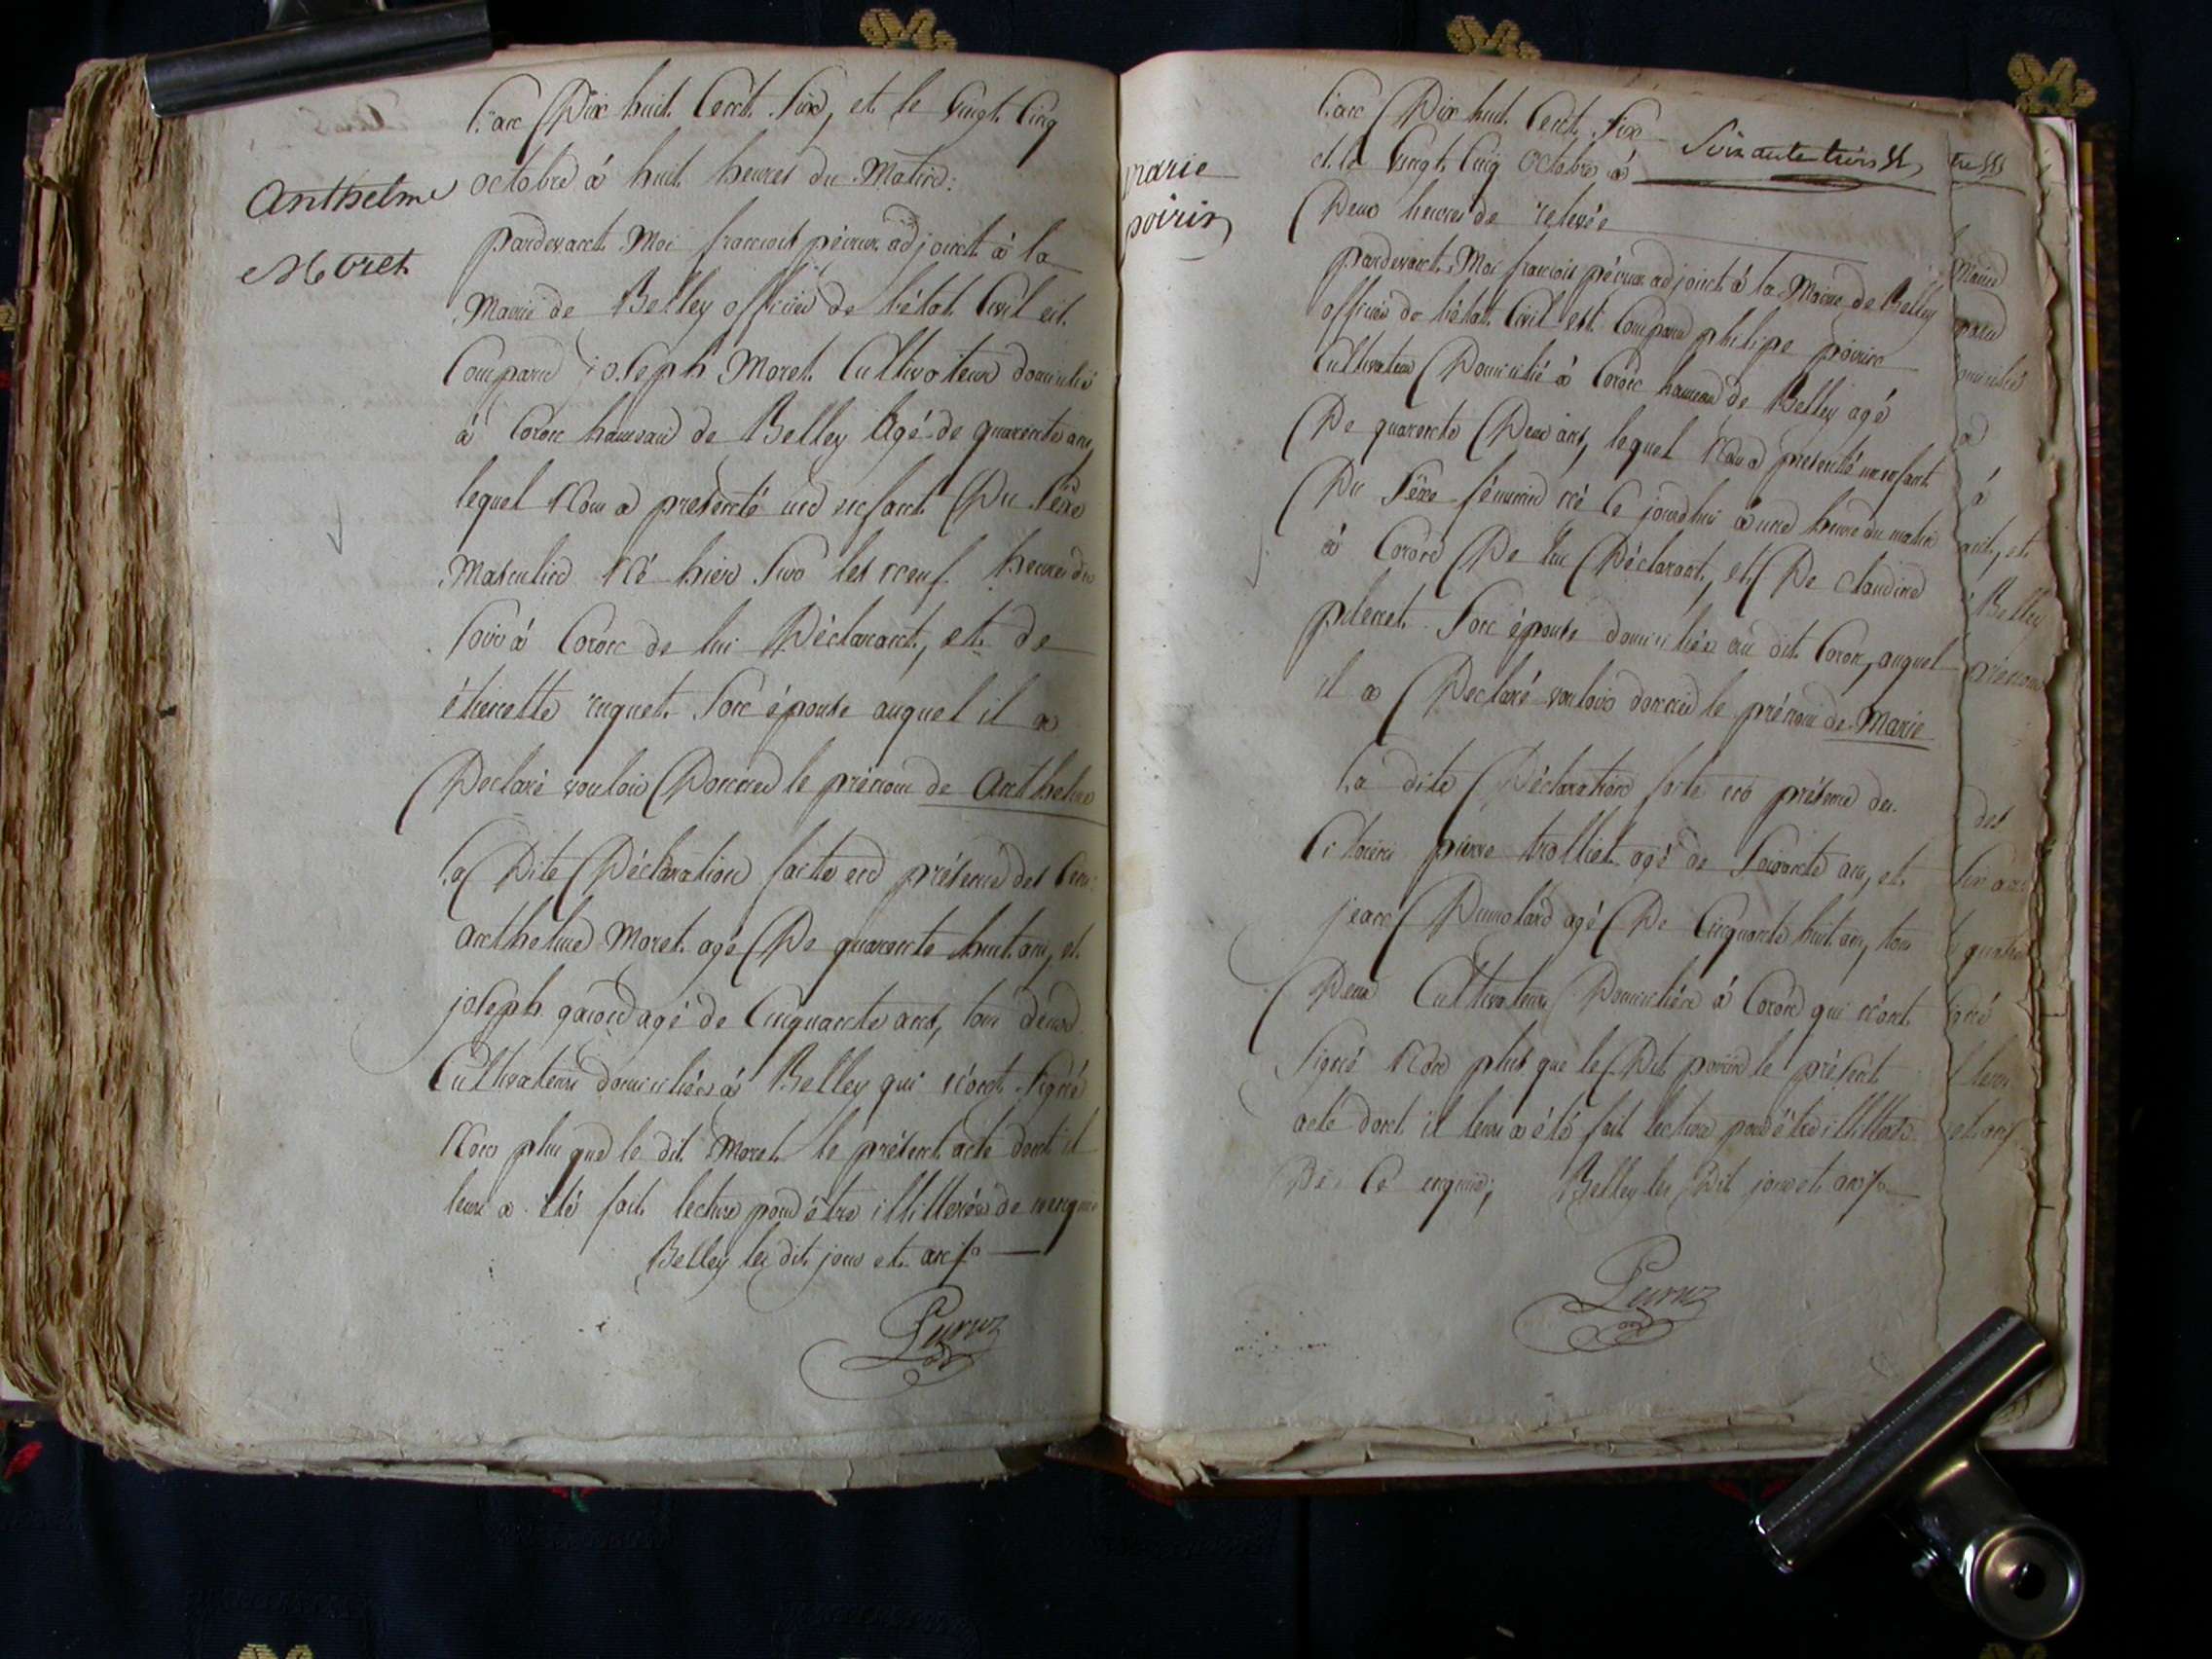 Anthelme
Moret
L'an Dix huit Cent Six, et le Vingt Cinq
octobre à huit heures du Matin:
pardevant Moi francois péruz adjoint à la
Mairie de Belley officier de l'état Civil est
Comparu joseph Moret Cultivateur domicilié
à Coron hameau de Belley Agé de quarente ans,
lequel Nous a presenté un enfant Du Sexe
Masculin Né hier Sur les neuf heures du
Soir à Coron de lui Déclarant, et de
étiennette Son épouse auquel il a
Declaré vouloir Donner le prénom de Anthelme
La Dite Déclaration faite en présence des
anthelme Moret agé De quarente huit ans, et
joseph agé de Cinquante ans, tous deux
Cultivateurs domiciliés à Belley qui n'ont Signé
Non plus que le dit Moret le présent acte dont il
leur a été fait lecture pour être illitterés de
Belley les dit jour et an
Peruz
marie
poirin
L'an Dix huit Cent Six
Soixante trois
et le Vingt Cinq Octobre à
Deux heures de relevée
pardevant Moi francois péruz adjoint à la Mairie de Belley
officier de l'état Civil est Comparu philipe poirin
Cultivateur Domicilié à Coron hameau de Belley agé
De quarente Deux ans, lequel Nous a presenté un enfant
Du Sexe féminin né Ce jourdhui à une heure du matin
à Coron De lui Déclarant, et De Claudine
Son épouse domiciliée au dit Coron, auquel
il a Declaré vouloir donner le prénom de Marie
La dite Déclaration faite en présence des
Citoiens pierre trolliet agé de Soixante ans, et
jean Dumolard agé De Cinquante huit ans, tous
Deux Cultivateurs Domiciliés à Coron qui n'ont
Signé Non plus que le Dit poirin le présent
acte dont il leur a été fait lecture pour être illiterés
De Ce enquis; Belley les Dit jour et an
Peruz
à
Belley
des